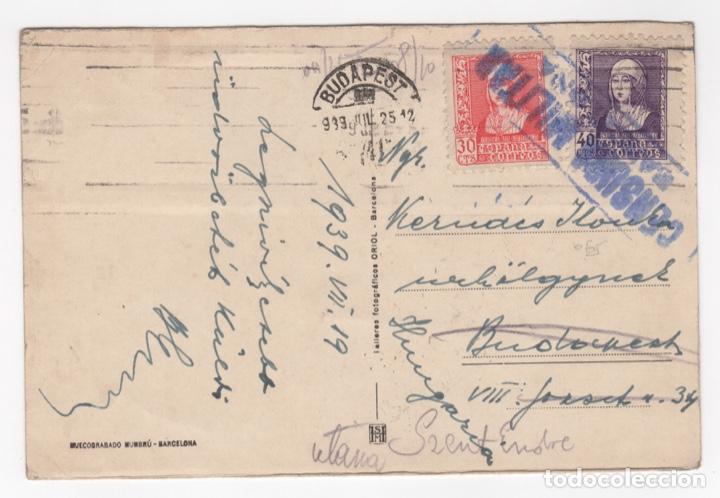 BUDAPEST
939 JUL 25 12
30
CTS
ESPAÑA
CORREOS
40
CTS
ESPAÑA
CORREOS
CENSURA MILITAR
Legszívélyesebb
üdvözletét küldi
1939. VII. 19
Ngs.
Kernács Ilonka
úrhölgynek
Budapest
VIII. József u. 34
Hungaria
utána Szent Endre
Talleres fotográficos ORIOL - Barcelona
HUECOGRABADO MUMBRÚ - BARCELONA
todocoleccion.net